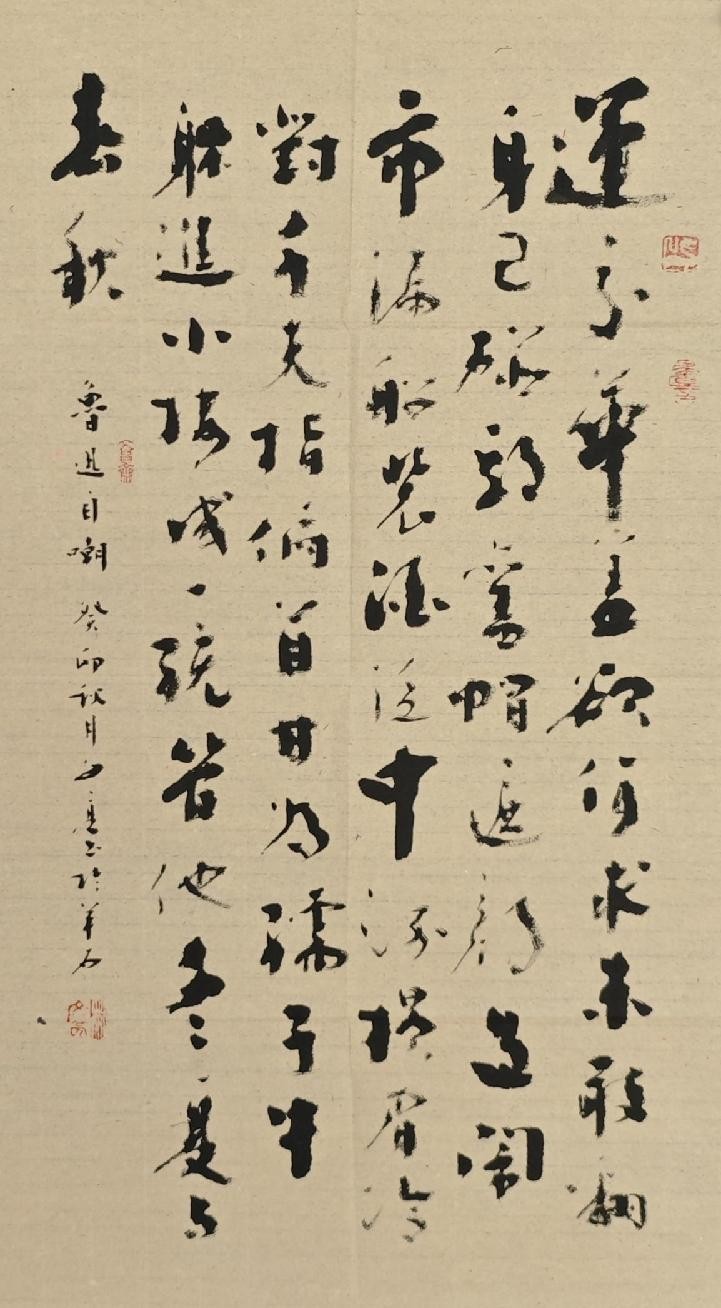 運交華蓋欲何求未敢翻
身已碰頭舊帽遮顏過鬧
市漏船裝酒泛中流橫眉冷
對千夫指俯首甘為孺子牛
躲進小樓成一統管他冬夏与
春秋 魯迅自嘲 癸卯秋月 書於羊石